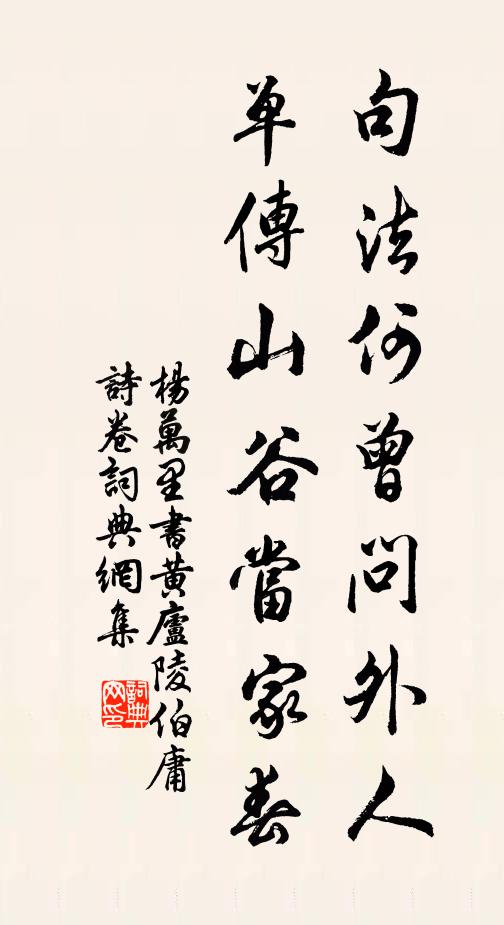 句法何曾問外人
單傳山谷當家春
楊萬里書黃廬陵伯庸
詩卷詞典網集
詞典網印